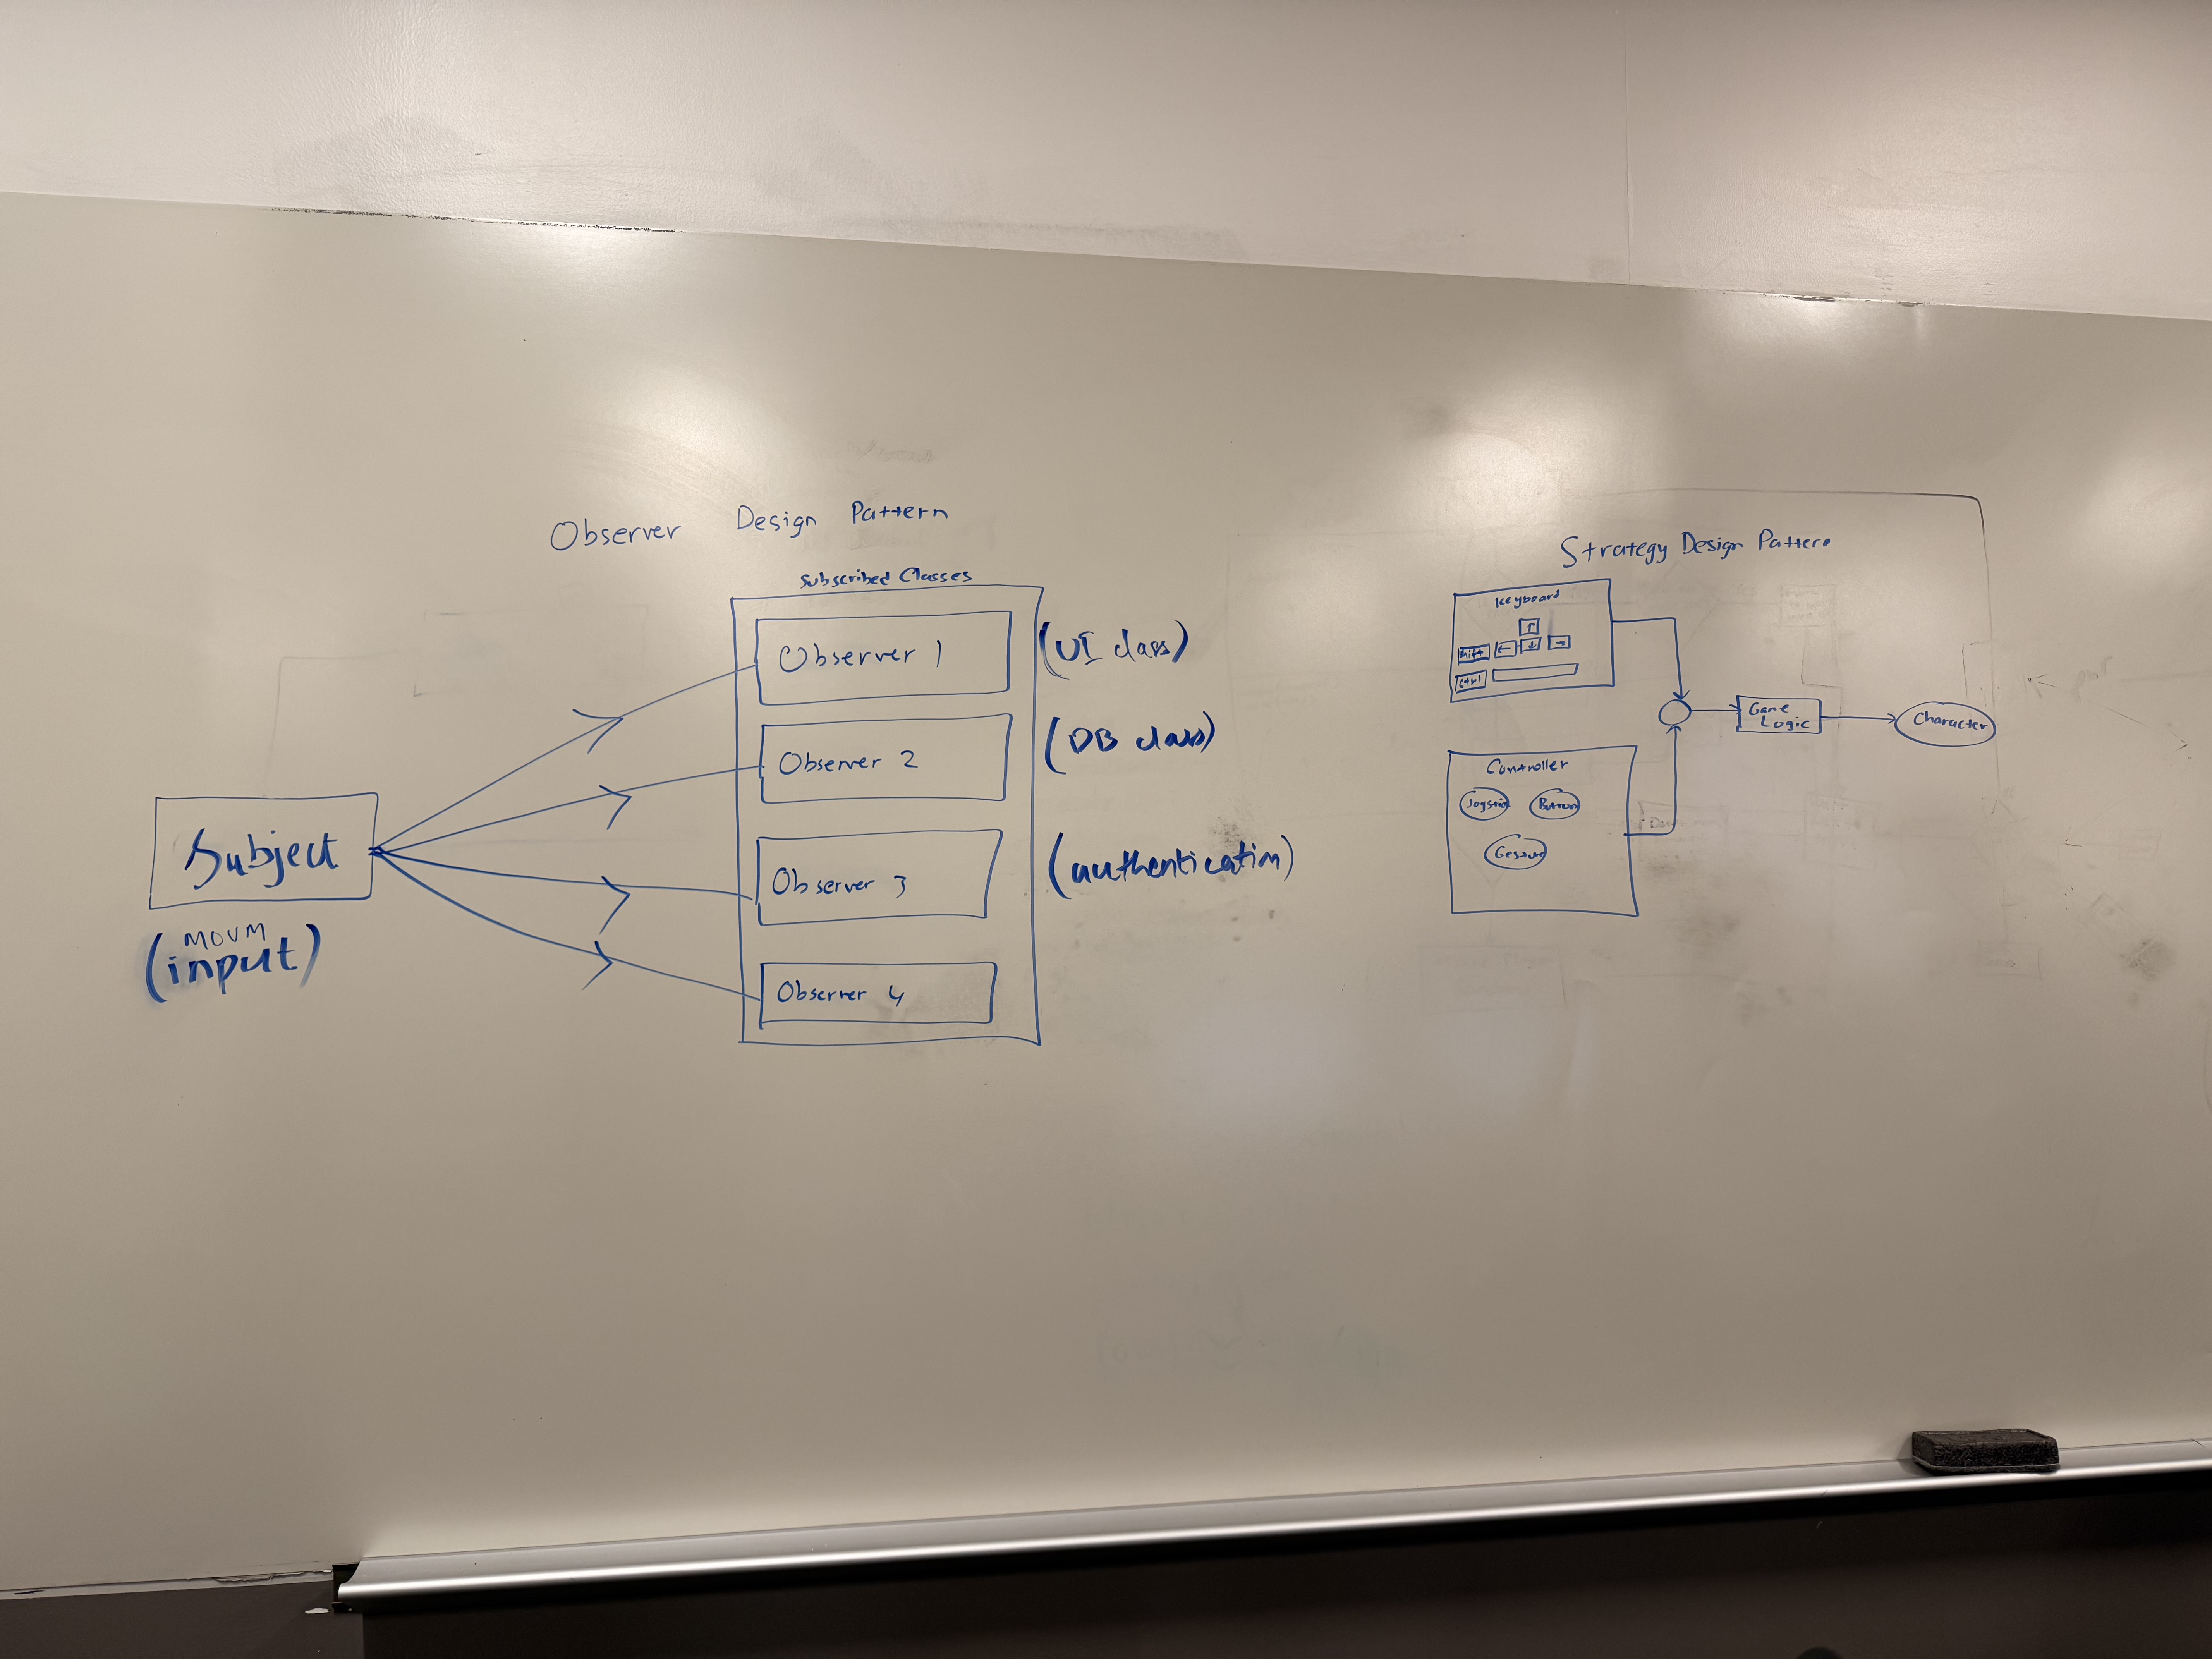 Observer Design Pattern
Subscribed Classes
Observer 1
(UI class)
Observer 2
(DB class)
Observer 3
(authentication)
Observer 4
Subject
MOVM
(input)
Strategy Design Pattern
Keyboard
↑
← ↓ →
Ctrl
Controller
Joystick
Button
Game
Logic
Character